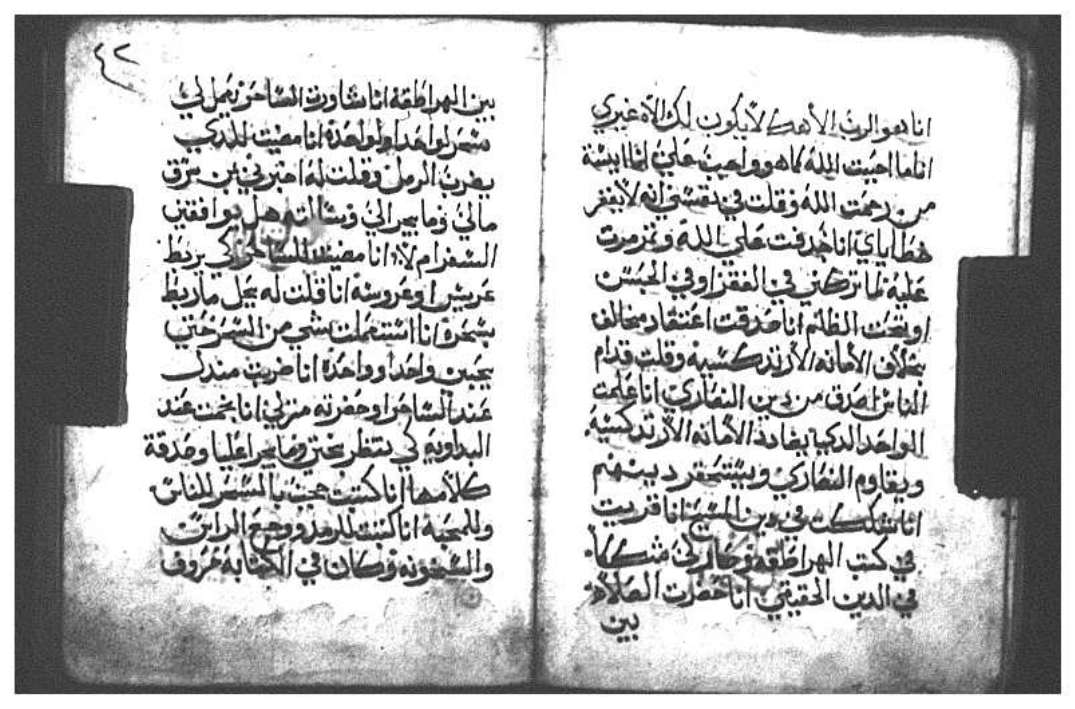 انا هو الرب الاهك لا يكون لك الاه غيري
انا ما احببت الله كما هو واجب عليّ انا ايست
من رحمت الله وقلت في نفسي انه لا يغفر
خطاياي انا جدفت علي الله وتمرمرت
عليه لما تركني في الفقر او في الحبس
او تحت الظلم انا صدقت اعتقاد مخالف
بخلاف الامانه الارتدكسيه وقلت قدام
الناس اصدق من دين النصاري انا علمت
الواحد الدي يضادد الامانه الارتدكسيه
ويقاوم النصاري ويستحقر دينهم
انا شككت في دين المسيح انا قريت
في كتب الهراطقه وصار لي شكك
في الدين الحقيقي انا حضرت الصلاه
بين
٤٢
بين الهراطقه انا شاورت الساحر يعمل لي
سحر لواحد او لواحدة انا مضيت للدي
يضرب الرمل وقلت له اخبرني من سرق
مالي وما يجرا لي وسالته هل يوافقني
السفر ام لا انا مضيت للساحر كي يربط
عريس او عروسة انا قلت له يحل ما ربط
بسحره انا استعملت شي من السحر حتي
يحبني واحد او واحدة انا ضربت مندل
عند الساحر او حضرته منزلي انا نجمت عند
البداويه كي تنظر بختي وما يجرا عليا وصدقة
كلامها انا كتبت حجب بالسحر للناس
وللمحبه انا كتبت للرمد ووجع الراس
والسخونه وكان في الكتابه حروف